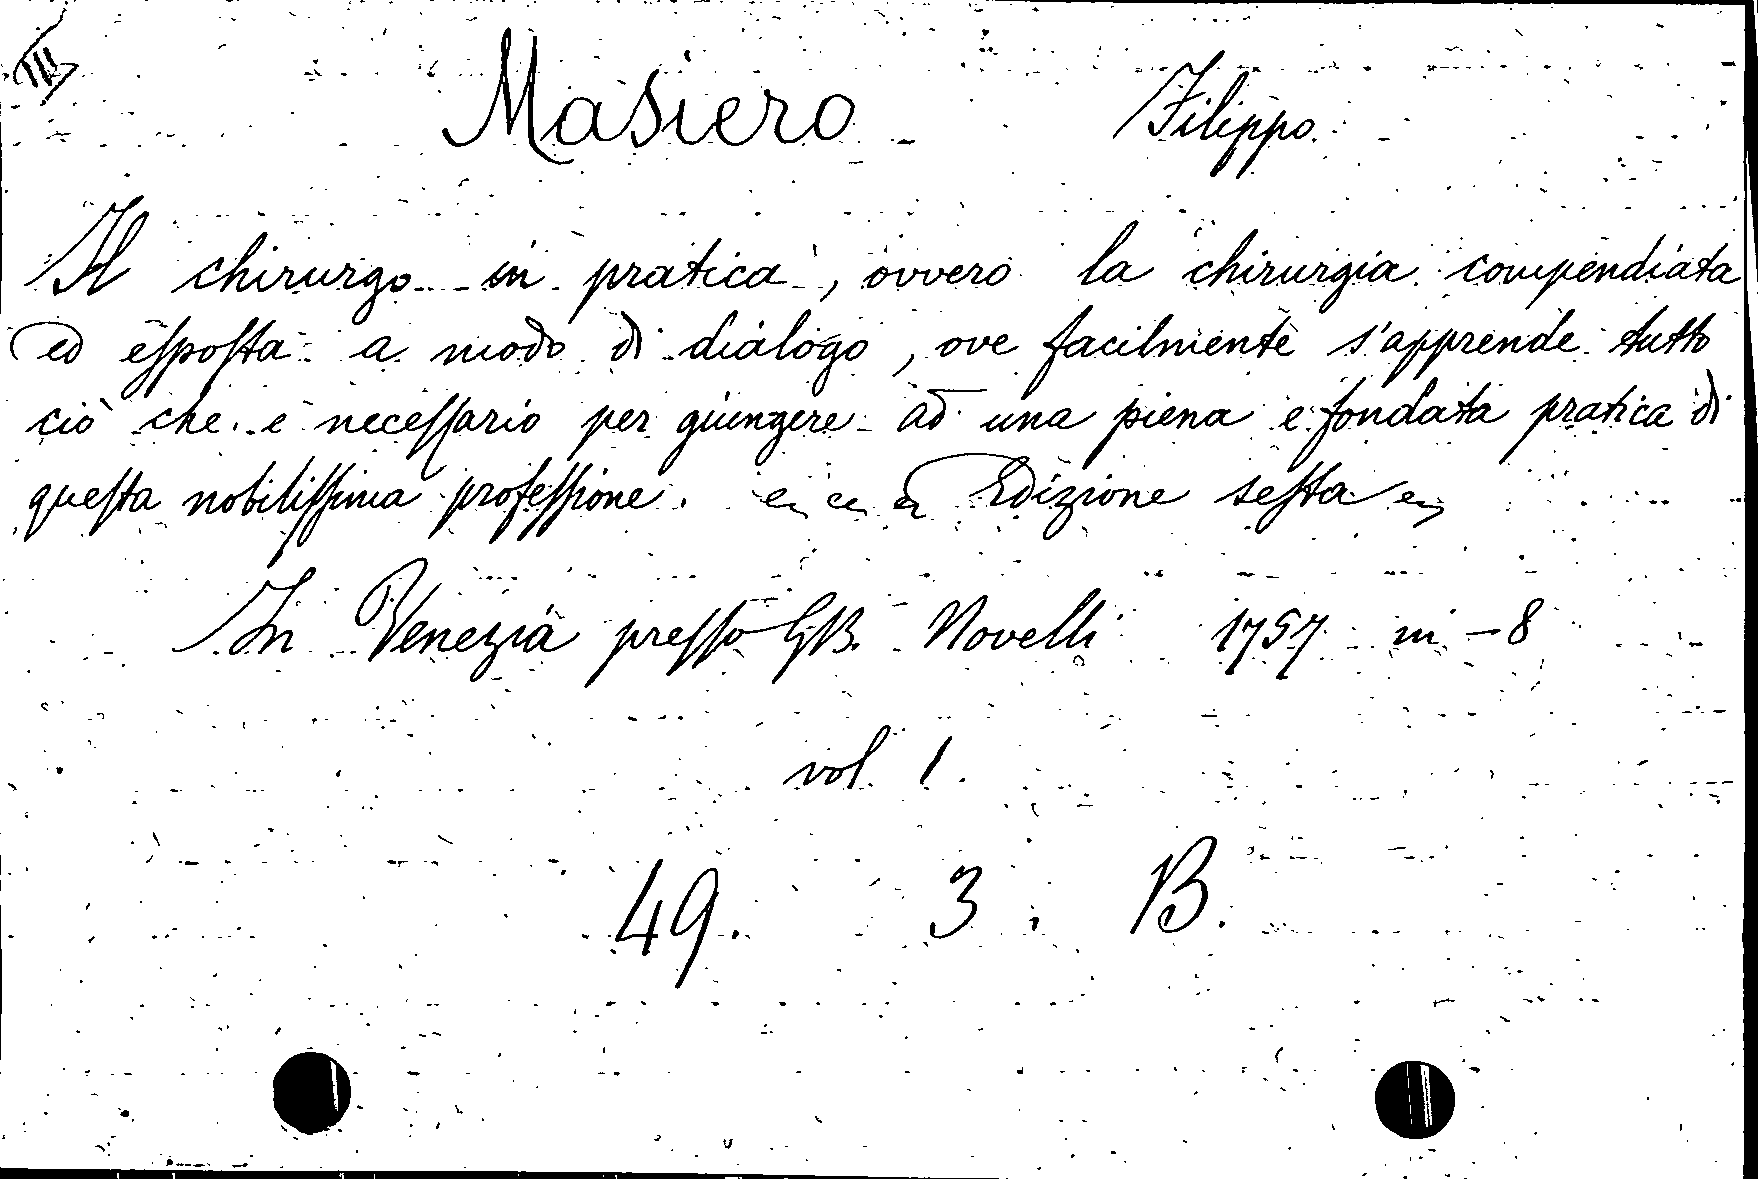 Masiero Filippo
Il chirurgo in pratica, ovvero la chirurgia compendiata
ed esposta a modo di dialogo, ove facilmente s'apprende tutto
ciò che è necessario per giungere ad una piena e fondata pratica di
questa nobilissima professione. Edizione sesta
In Venezia presso G.B. Novelli 1757 in-8
vol 1.
49. 3. B.